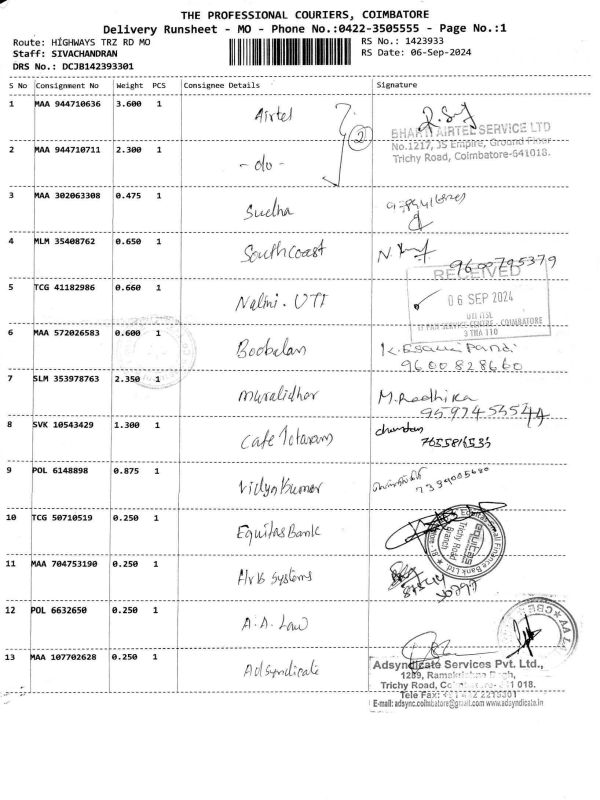 THE PROFESSIONAL COURIERS, COIMBATORE
Delivery Runsheet - MO - Phone No.:0422-3505555 - Page No.:1
Route: HIGHWAYS TRZ RD MO
RS No.: 1423933
Staff: SIVACHANDRAN
RS Date: 06-Sep-2024
DRS No.: DCJB142393301
S No Consignment No Weight PCS Consignee Details Signature
1 MAA 944710636 3.600 1 Airtel 2
BHARTI AIRTEL SERVICE LTD
No.1217, JS Empire, Ground Floor
Trichy Road, Coimbatore-641018.
2 MAA 944710711 2.300 1 - do -
3 MAA 302063308 0.475 1 Sudha
4 MLM 35408762 0.650 1 Southcoast
9600795379
RECEIVED
5 TCG 41182986 0.660 1 Nalini. UTI
06 SEP 2024
UTI ITSL
COIMBATORE
6 MAA 572026583 0.600 1 Boobalan
9600828660
7 SLM 353978763 2.350 1 Muralidhar M. Radhika
8 SVK 10543429 1.300 1 Cafe Totaram
9 POL 6148898 0.875 1 Vidya Kumar
10 TCG 50710519 0.250 1 Equitas Bank
equitas
Trichy Road
Branch
11 MAA 704753190 0.250 1 systems
12 POL 6632650 0.250 1 A.A. Law
13 MAA 107702628 0.250 1 Adsyndicate
Adsyndicate Services Pvt. Ltd.,
1289, Ramakrishna
Trichy Road, 018.
Tele Fax:
E-mail: adsync.coimbatore@gmail.com www.adsyndicate.in